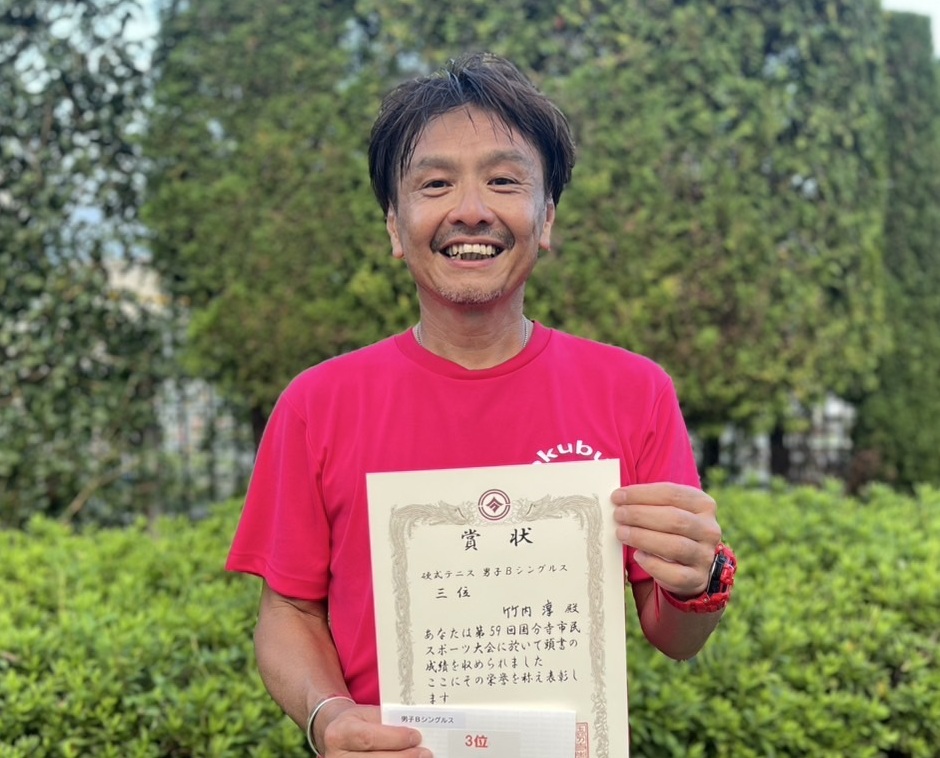 kubu
賞状
硬式テニス 男子Bシングルス
三位
竹内 淳 殿
あなたは第59回国分寺市民
スポーツ大会に於いて頭書の
成績を収められました
ここにその栄誉を称え表彰し
ます
男子Bシングルス
3位